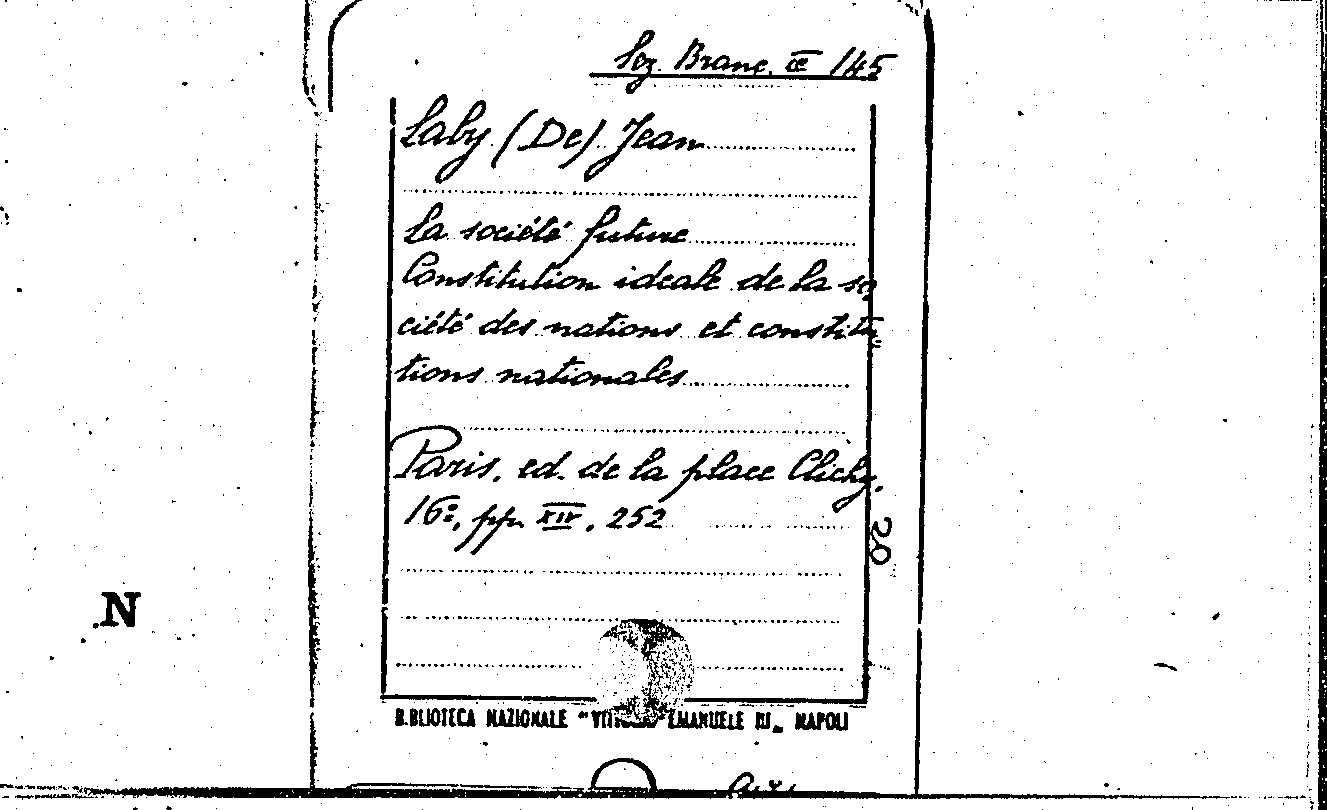 Sez. Branc. III 145
Laby (De) Jean
La société future
Constitution ideale de la so
ciété des nations et constitu
tions nationales
Paris. ed. de la place Clichy.
16º, pp. XIV. 252
20
N
BIBLIOTECA NAZIONALE "VITTORIO EMANUELE III" NAPOLI